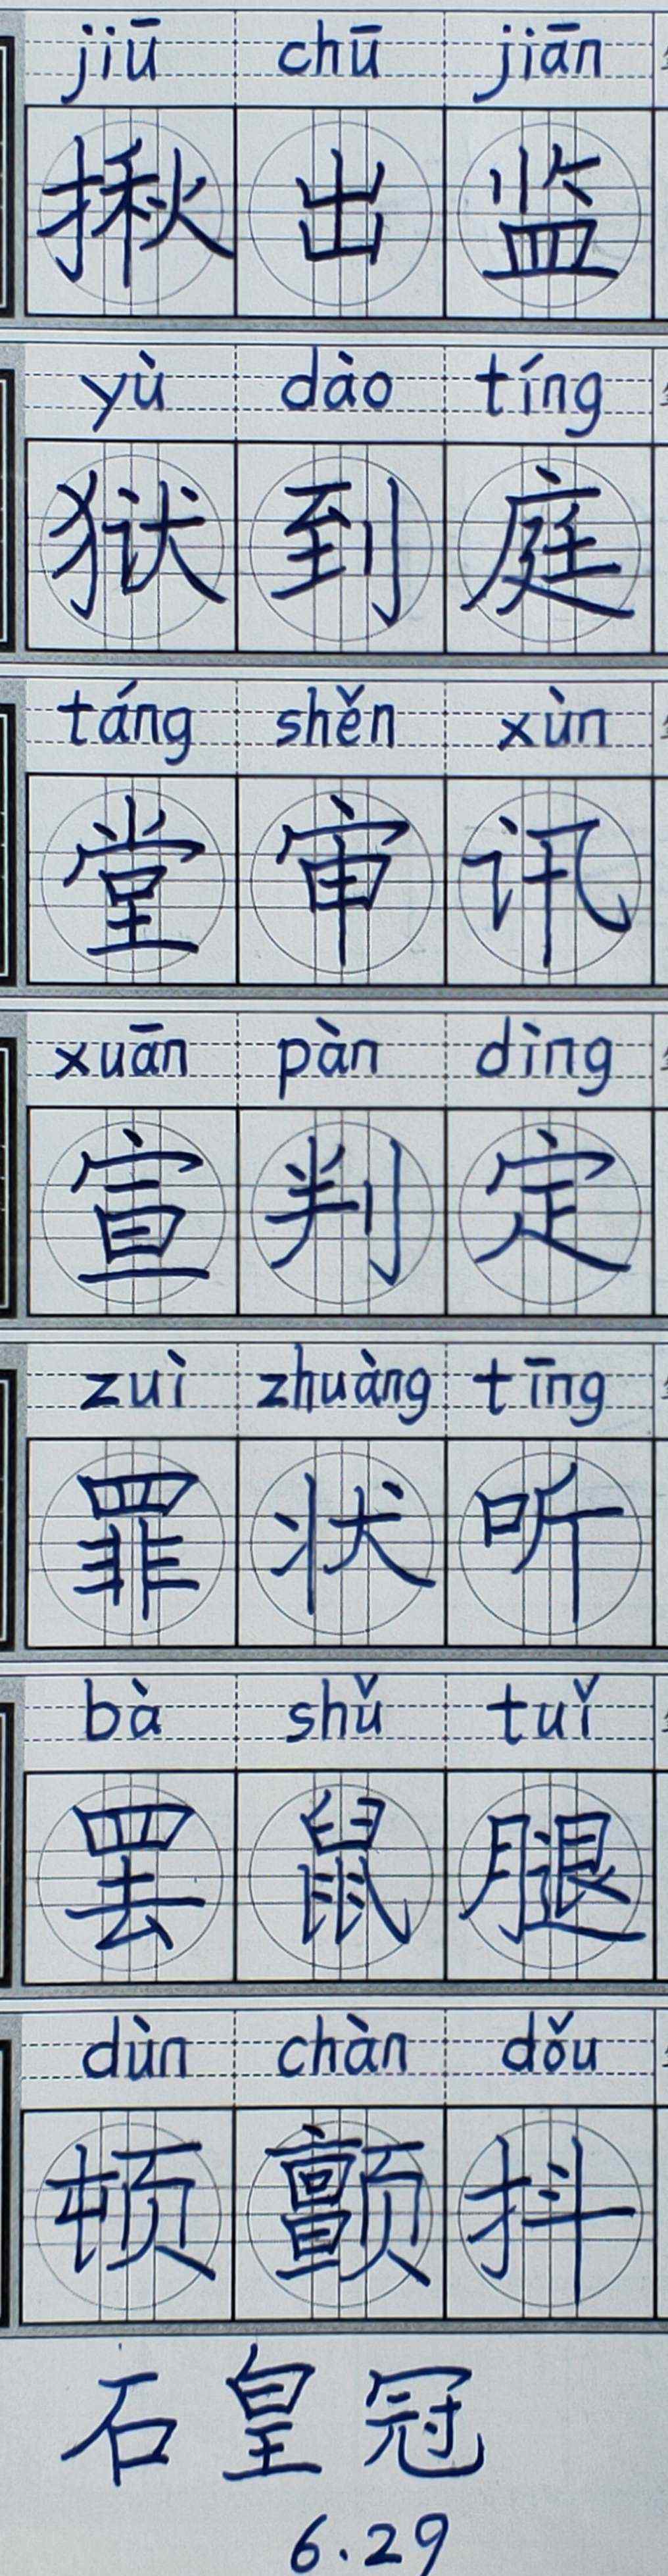 jiū chū jiān
揪出监
yù dào tíng
狱到庭
táng shěn xùn
堂审讯
xuān pàn dìng
宣判定
zuì zhuàng tīng
罪状听
bà shǔ tuǐ
罢鼠腿
dùn chàn dǒu
顿颤抖
石皇冠
6.29